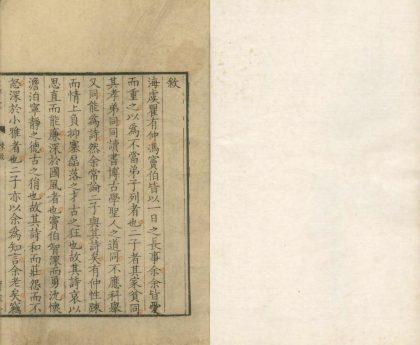 敘
海虞瞿有仲馮竇伯皆以一日之長事余余皆愛
而重之以為不當弟子列者也二子者其家貧同
其孝弟同同讀書博古學聖人之道同不應科舉
又同能為詩然余常論二子與其詩矣有仲性踈
而情上負抑塞磊落之才古之狂也故其詩哀以
思直而能廉深於國風者也竇伯智深而勇沈懷
澹泊寧靜之德古之狷也故其詩和而莊怨而不
怒深於小雅者也二子亦以余為知言余老矣